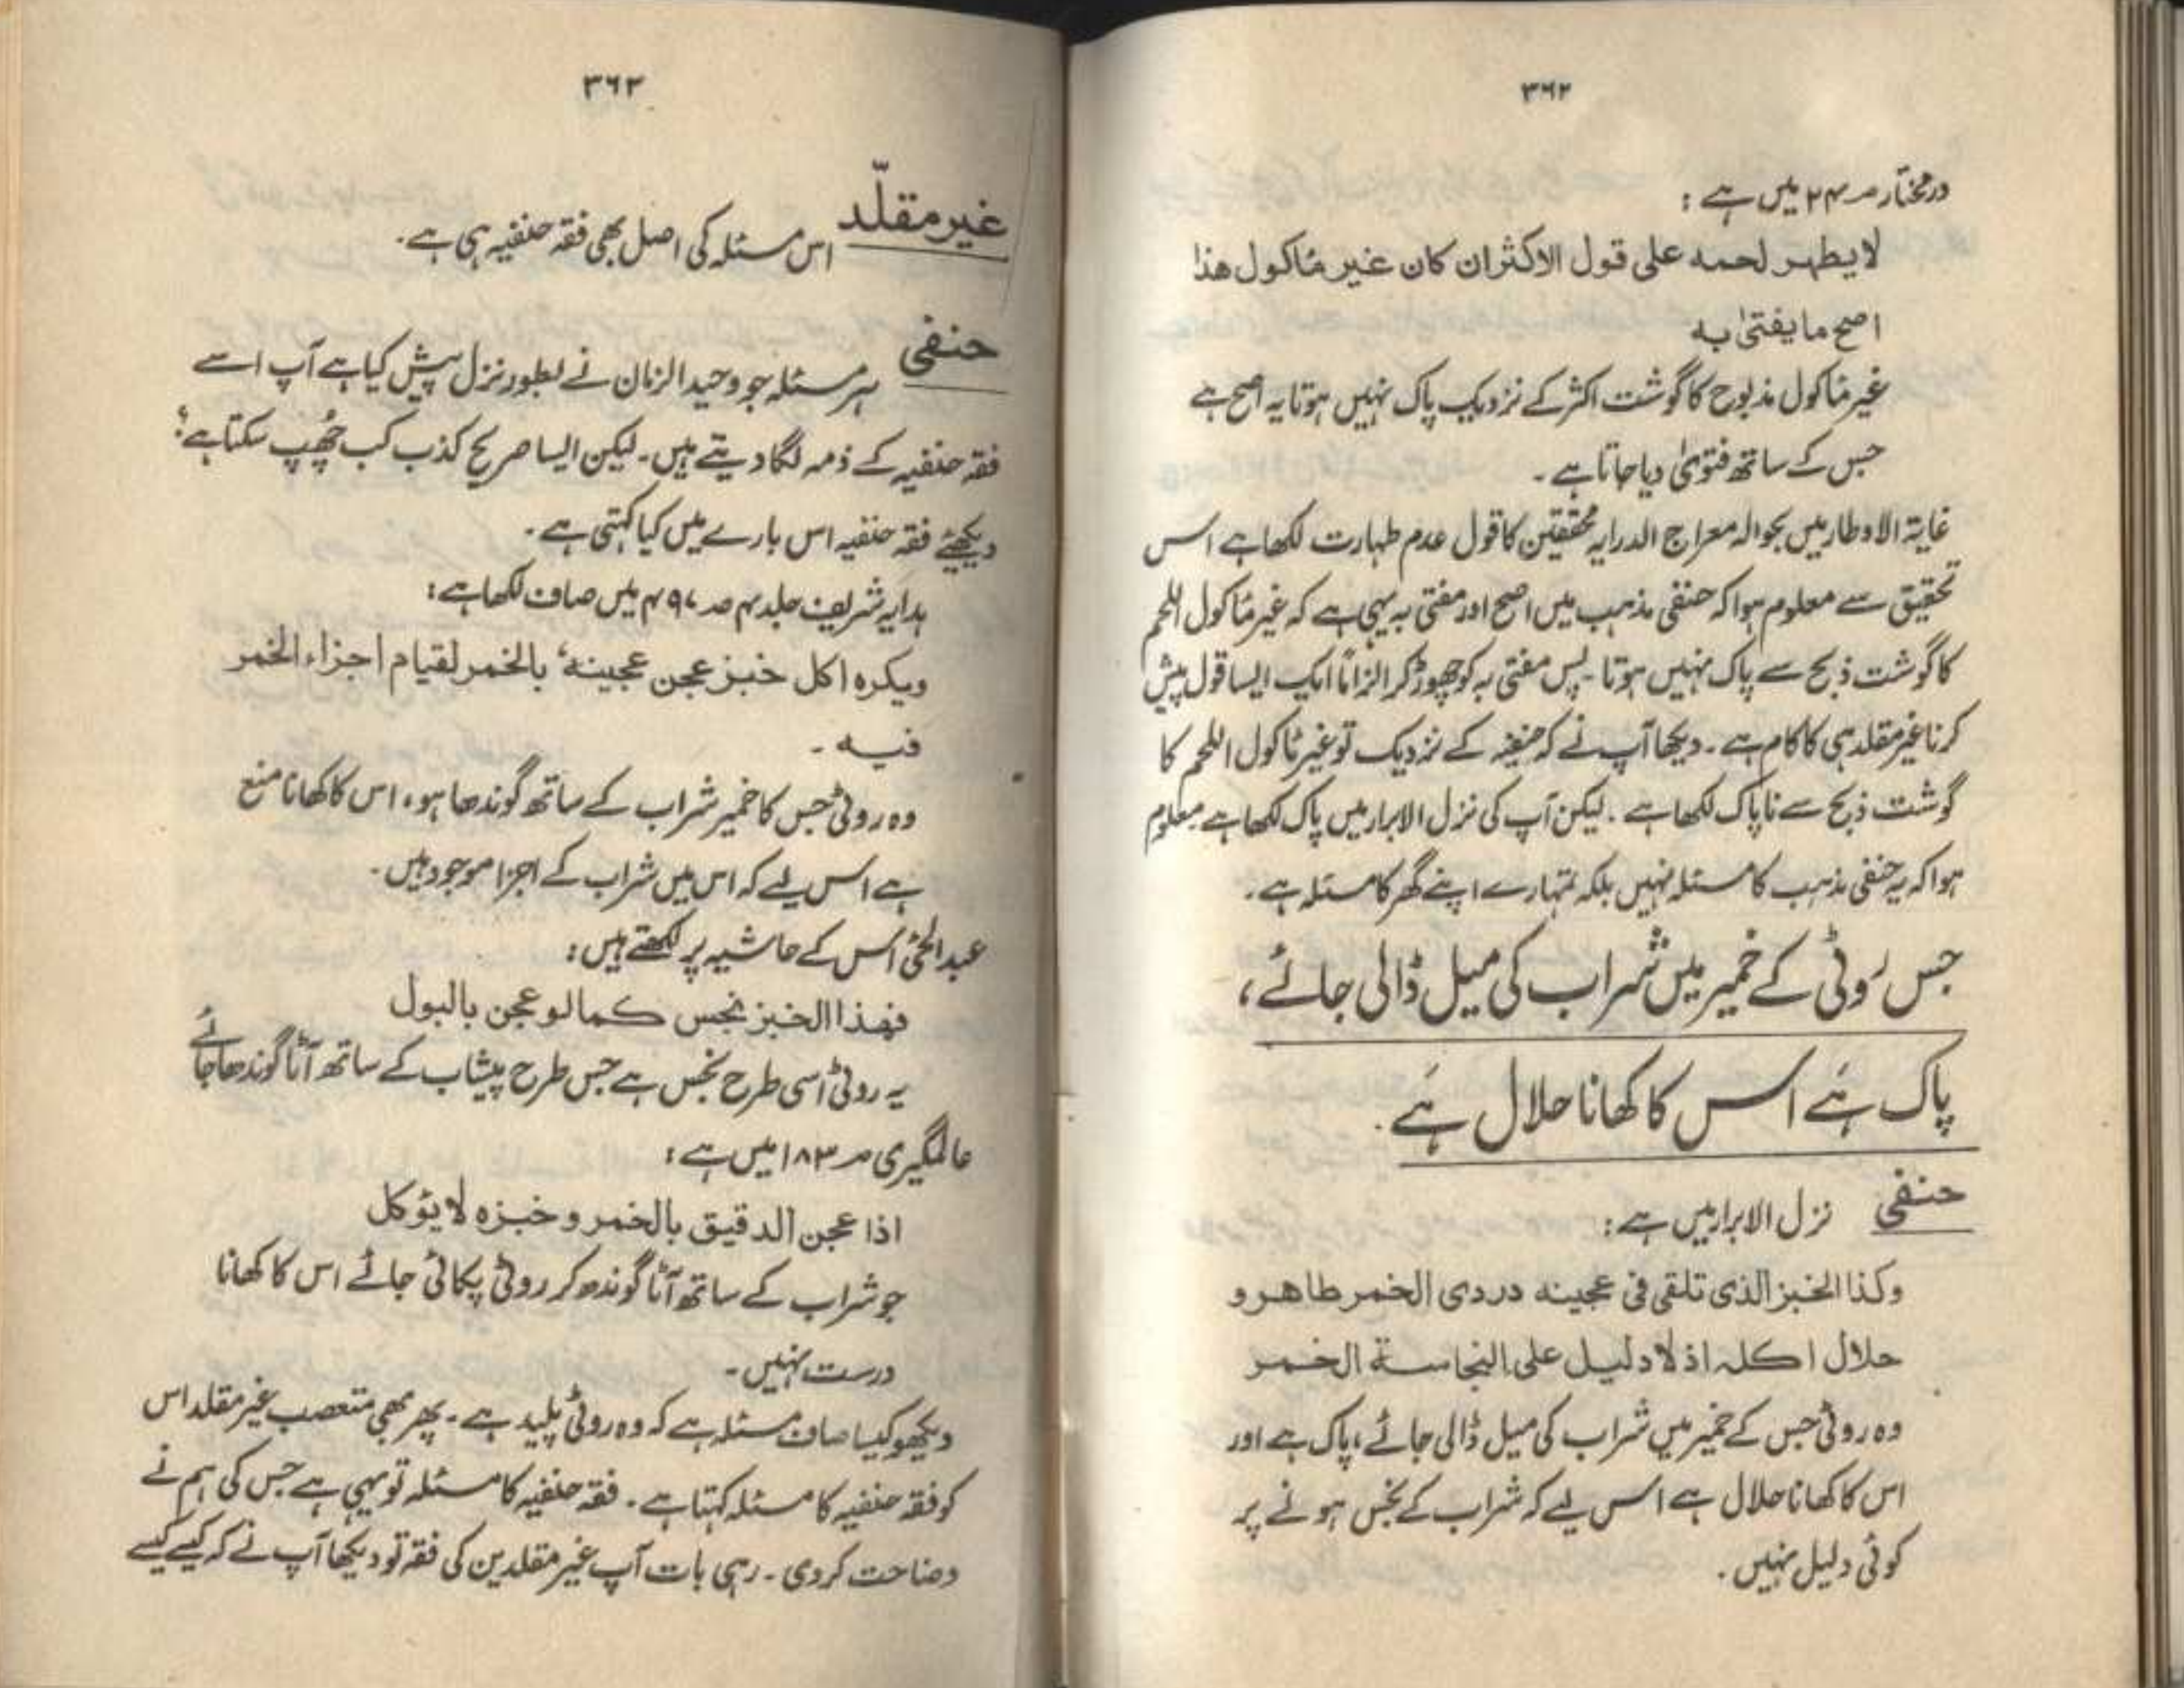 ۳۶۲
درمختار صـ ۲۴ میں ہے :
لا یطہر لحمہ علی قول الاکثر ان کان غیر مَاکول ھذا
اصح ما یفتیٰ بہ
غیر مَاکول مذبوح کا گوشت اکثر کے نزدیک پاک نہیں ہوتا یہ اصح ہے
جس کے ساتھ فتویٰ دیا جاتا ہے ۔
غایۃ الاوطار میں بحوالہ معراج الدرایہ محققین کا قول عدم طہارت لکھا ہے اس
تحقیق سے معلوم ہوا کہ حنفی مذہب میں اصح اور مفتی بہ یہی ہے کہ غیر مَاکول اللحم
کا گوشت ذبح سے پاک نہیں ہوتا ۔ پس مفتی بہ کو چھوڑ کر الزاماً ایک ایسا قول پیش
کرنا غیر مقلد ہی کا کام ہے ۔ دیکھا آپ نے کہ حنفیہ کے نزدیک تو غیر مَاکول اللحم کا
گوشت ذبح سے ناپاک لکھا ہے ۔ لیکن آپ کی نزل الابرار میں پاک لکھا ہے معلوم
ہوا کہ یہ حنفی مذہب کا مسئلہ نہیں بلکہ تمہارے اپنے گھر کا مسئلہ ہے ۔
جس روٹی کے خمیر میں شراب کی میل ڈالی جائے ،
پاک ہَے اس کا کھانا حلال ہَے ۔
حنفی نزل الابرار میں ہے :
وکذا الخبز الذی تلقی فی عجینہ دردی الخمر طاھر و
حلال اکلہ اذ لا دلیل علی النجاسۃ الخمر
وہ روٹی جس کے خمیر میں شراب کی میل ڈالی جائے ، پاک ہے اور
اس کا کھانا حلال ہے اس لیے کہ شراب کے نجس ہونے پر
کوئی دلیل نہیں ۔
۳۶۳
غیر مقلّد اس مسئلہ کی اصل بھی فقہ حنفیہ ہی ہے ۔
حنفی ہر مسئلہ جو وحید الزمان نے بطور نزل پیش کیا ہے آپ اسے
فقہ حنفیہ کے ذمہ لگا دیتے ہیں ۔ لیکن ایسا صریح کذب کب چُھپ سکتا ہے ؟
دیکھئے فقہ حنفیہ اس بارے میں کیا کہتی ہے ۔
ہدایہ شریف جلد ۴ صـ ۴۹۷ میں صاف لکھا ہے :
ویکرہ اکل خبز عجن عجینہ' بالخمر لقیام اجزاء الخمر
فیہ ۔
وہ روٹی جس کا خمیر شراب کے ساتھ گوندھا ہو ، اس کا کھانا منع
ہے اس لیے کہ اس میں شراب کے اجزا موجود ہیں ۔
عبد الحئ اس کے حاشیہ پر لکھتے ہیں :
فھذا الخبز نجس کما لو عجن بالبول
یہ روٹی اسی طرح نجس ہے جس طرح پیشاب کے ساتھ آٹا گوندھا جائے
عالمگیری صـ ۱۸۳ میں ہے :
اذا عجن الدقیق بالخمر و خبزہ لا یؤکل
جو شراب کے ساتھ آٹا گوندھ کر روٹی پکائی جائے اس کا کھانا
درست نہیں ۔
دیکھو کیسا صاف مسئلہ ہے کہ وہ روٹی پلید ہے ۔ پھر بھی متعصب غیر مقلد اس
کو فقہ حنفیہ کا مسئلہ کہتا ہے ۔ فقہ حنفیہ کا مسئلہ تو یہی ہے جس کی ہم نے
وضاحت کر دی ۔ رہی بات آپ غیر مقلدین کی فقہ تو دیکھا آپ نے کہ کیسے کیسے